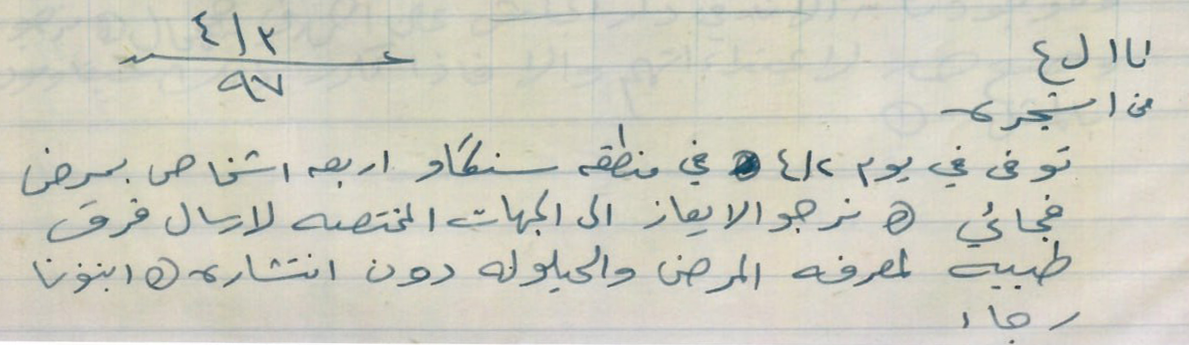 ٤/٣
٩٧
نا ا ل ع
من استجره
توفى في يوم ٤/٢ في منطقه سنگاو اربعه اشخاص بمرض
فجائي ⊙ نرجو الايعاز الى الجهات المختصه لارسال فرق
طبيه لمعرفه المرض والحيلوله دون انتشاره ⊙ انبئونا
رجاء